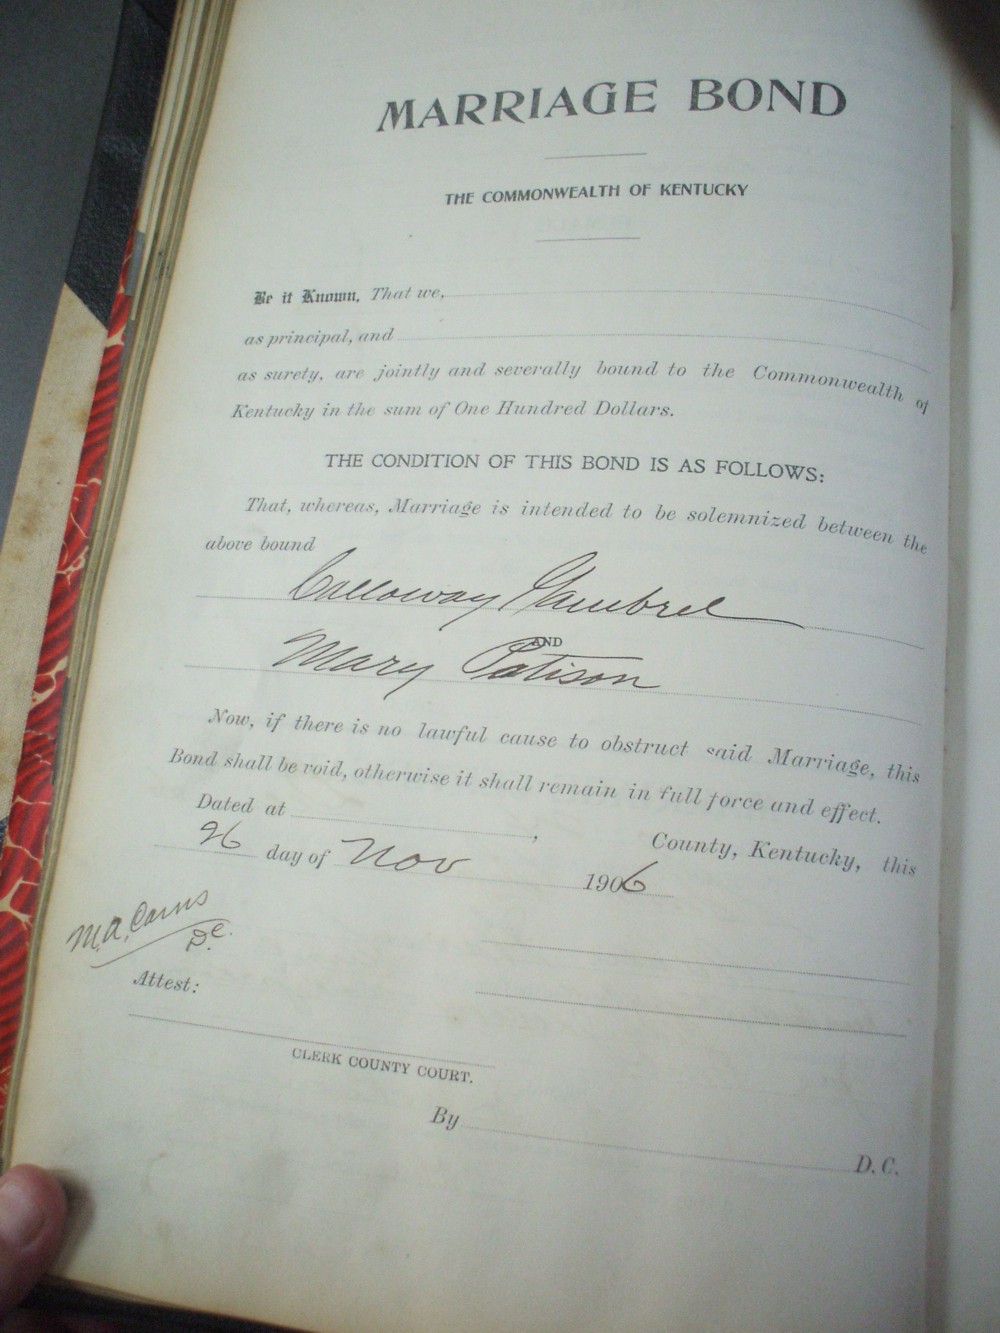 MARRIAGE BOND
THE COMMONWEALTH OF KENTUCKY
Be it Known, That we,
as principal, and
as surety, are jointly and severally bound to the Commonwealth of
Kentucky in the sum of One Hundred Dollars.
THE CONDITION OF THIS BOND IS AS FOLLOWS:
That, whereas, Marriage is intended to be solemnized between the
above bound
Calloway Gambrel
AND
Mary Patison
Now, if there is no lawful cause to obstruct said Marriage, this
Bond shall be void, otherwise it shall remain in full force and effect.
Dated at , County, Kentucky, this
26 day of Nov 1906
M.A. Carns
D.C.
Attest:
CLERK COUNTY COURT.
By D. C.